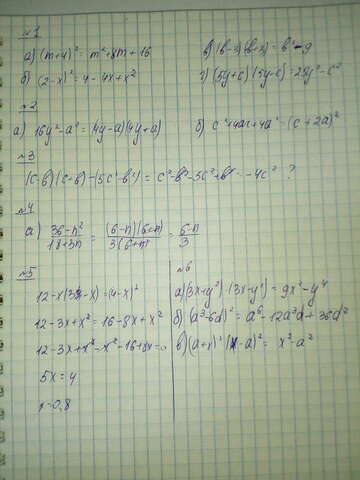 №1
а) (m+4)² = m²+8m+16
в) (b-3)(b+3) = b²-9
б) (2-x)² = 4-4x+x²
г) (5y+c)(5y-c) = 25y²-c²
№2
а) 16y²-a² = (4y-a)(4y+a)
б) c²+4ac+4a² = (c+2a)²
№3
(c-b)(c+b)-(5c²-b²) = c²-b²-5c²+b² = -4c² ?
№4
а) 36-n²/18+3n = (6-n)(6+n)/3(6+n) = 6-n/3
№5
12-x(3-x)=(4-x)²
12-3x+x²=16-8x+x²
12-3x+x²-x²-16+8x=0
5x=4
x=0,8
№6
а) (3x+y²)(3x-y²) = 9x²-y⁴
б) (a³-6d)² = a⁶-12a³d+36d²
в) (a+x)²(x-a)² = x²-a²